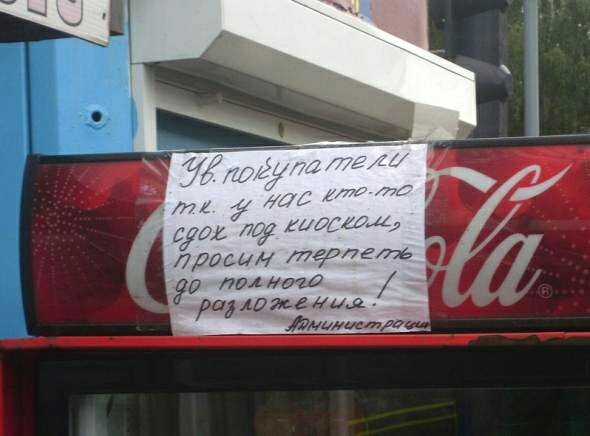 Ув. покупатели
т.к. у нас кто-то
сдох под киоском,
просим терпеть
до полного
разложения!
Администрация
Coca-Cola®